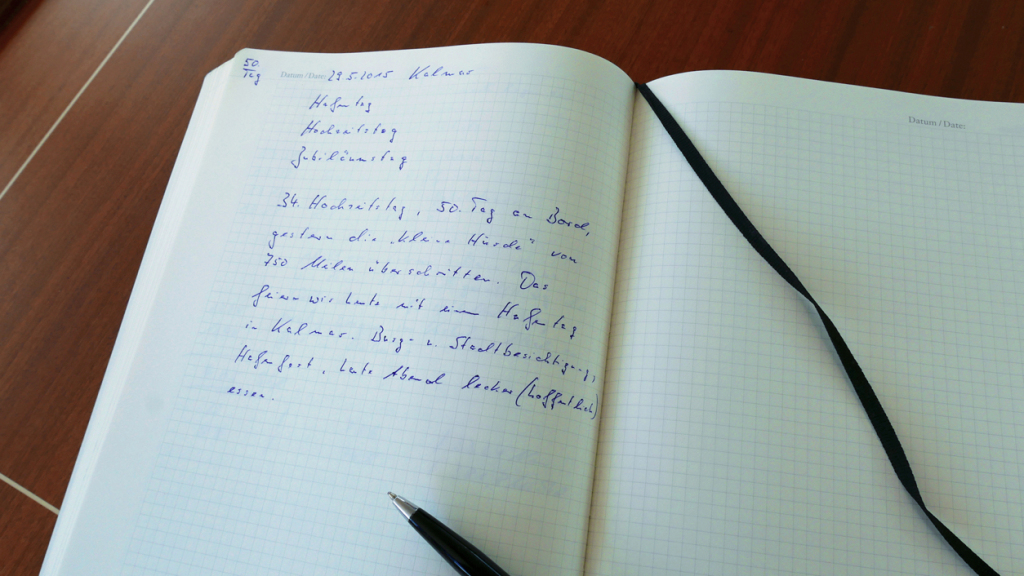 50.
Tag
Datum / Date: 29.5.2015 Kalmar
Hafentag
Hochzeitstag
Jubiläumstag
34. Hochzeitstag, 50. Tag an Bord,
gestern die „kleine Hürde“ von
750 Meilen überschritten. Das
feiern wir heute mit einem Hafentag
in Kalmar. Burg- u. Stadtbesichtigung,
Hafenfest, heute Abend lecker (hoffentlich)
essen.
Datum / Date: